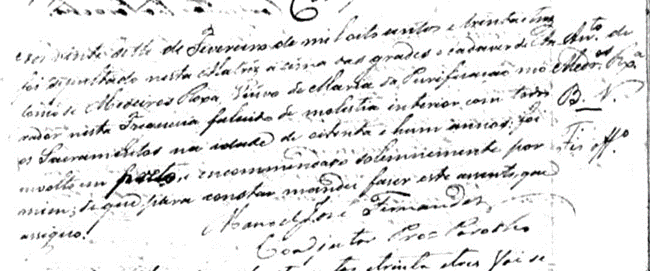 Aos vinte de de Fevereiro de mil oito centos e trinta e tres
foi sepultado nesta Matriz acima das grades o cadaver de An
tonio de Medeiros Roza, Viuvo de Maria da Purificação mo
rador nesta Freguezia falecido de molestia interior com todos
os Sacramentos na idade de oitenta e hum annos, foi
involto em preto, e encommendado solemnemente por
mim; de que para constar mandei fazer este assento, que
assigno.
Manoel José Fernandes
Coadjutor Pro Parocho
Anto de
Medros Rza
B. N.